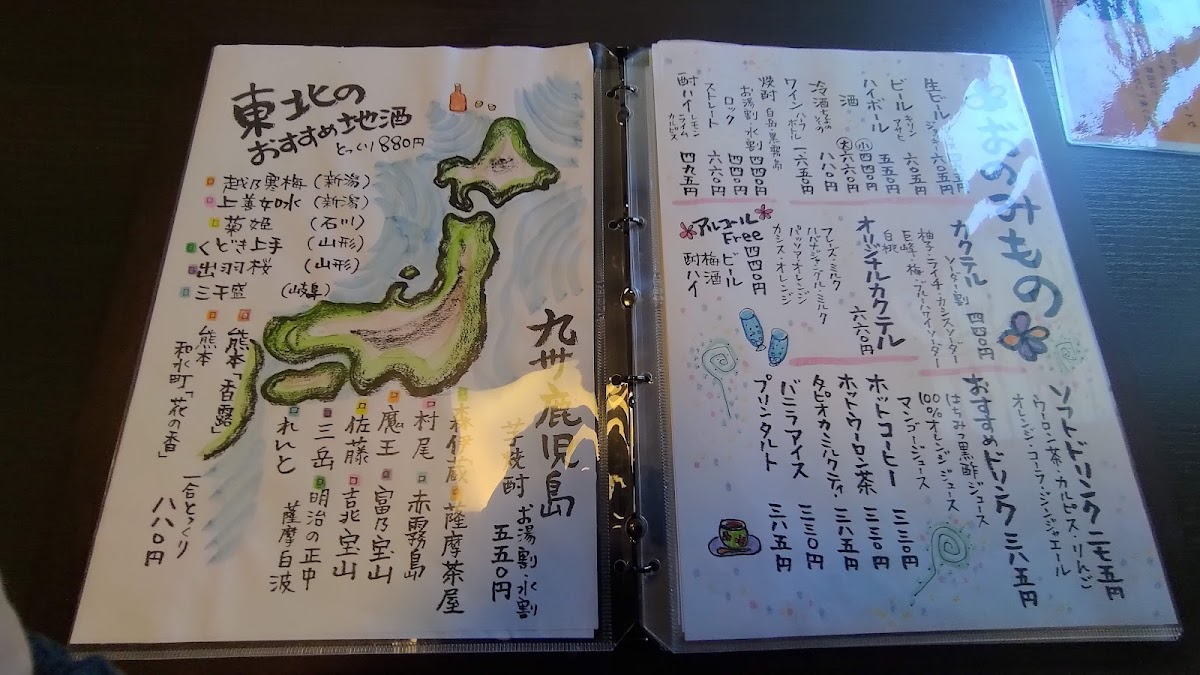 東北の
おすすめ地酒
とっくり880円
越乃寒梅 (新潟)
上善如水 (新潟)
菊姫 (石川)
くどき上手 (山形)
出羽桜 (山形)
三千盛 (岐阜)
熊本「香露」
熊本
和水町「花の香」
一合とっくり
八八〇円
九州鹿児島
芋焼酎 お湯割・水割
五五〇円
森伊蔵
薩摩茶屋
村尾
赤霧島
魔王
富乃宝山
佐藤
吉兆宝山
三岳
明治の正中
れんと
薩摩白波
おのみもの
生ビール
ビール キリン アサヒ 六〇五円
ハイボール 五五〇円
酒 小 四四〇円
大 六六〇円
冷酒 八八〇円
ワイン ハーフボトル 一、六五〇円
焼酎 白岳・黒霧島
お湯割・水割 四四〇円
ロック 四四〇円
ストレート 六六〇円
酎ハイ レモン ライム カルピス 四九五円
カクテル
ソーダー割 四四〇円
柚子・ライチ・カシスソーダー
巨峰・梅・ブルーハワイソーダー
白桃
オリジナルカクテル 六六〇円
フレーズ・ミルク
パッツァ・オレンジ
カシス・オレンジ
アルコール
Free 四四〇円
ビール
梅酒
酎ハイ
ソフトドリンク 二七五円
ウーロン茶・カルピス・りんご
オレンジ・コーラ・ジンジャエール
おすすめドリンク 三八五円
はちみつ黒酢ジュース
100%オレンジジュース
マンゴージュース
ホットコーヒー 三三〇円
ホットウーロン茶 三三〇円
タピオカミルクティ 三八五円
バニラアイス 三三〇円
プリンタルト 三八五円